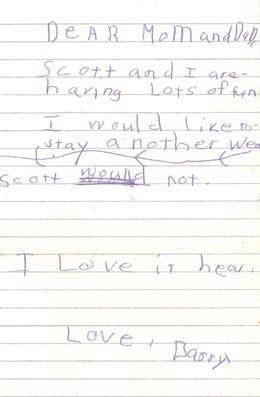 DEAR Mom and Dad,
Scott and I are
having Lots of fun
I would like to
stay another Wee
Scott would not.
I Love it hear.
Love, Barry